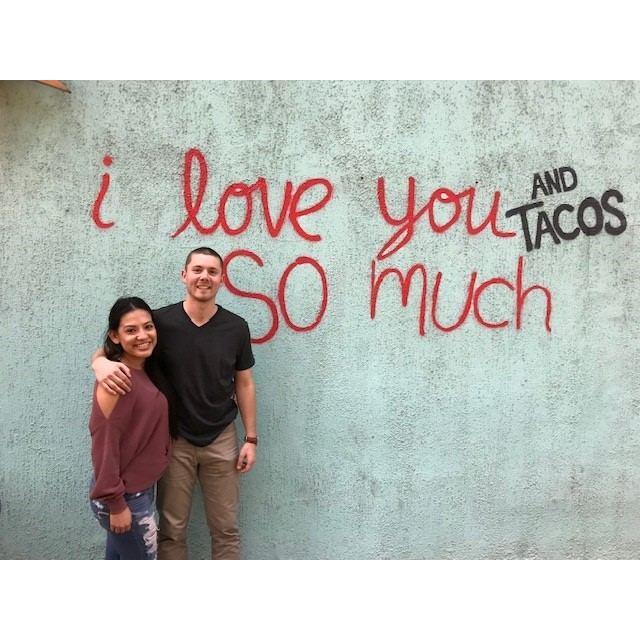 i love you AND TACOS
so much